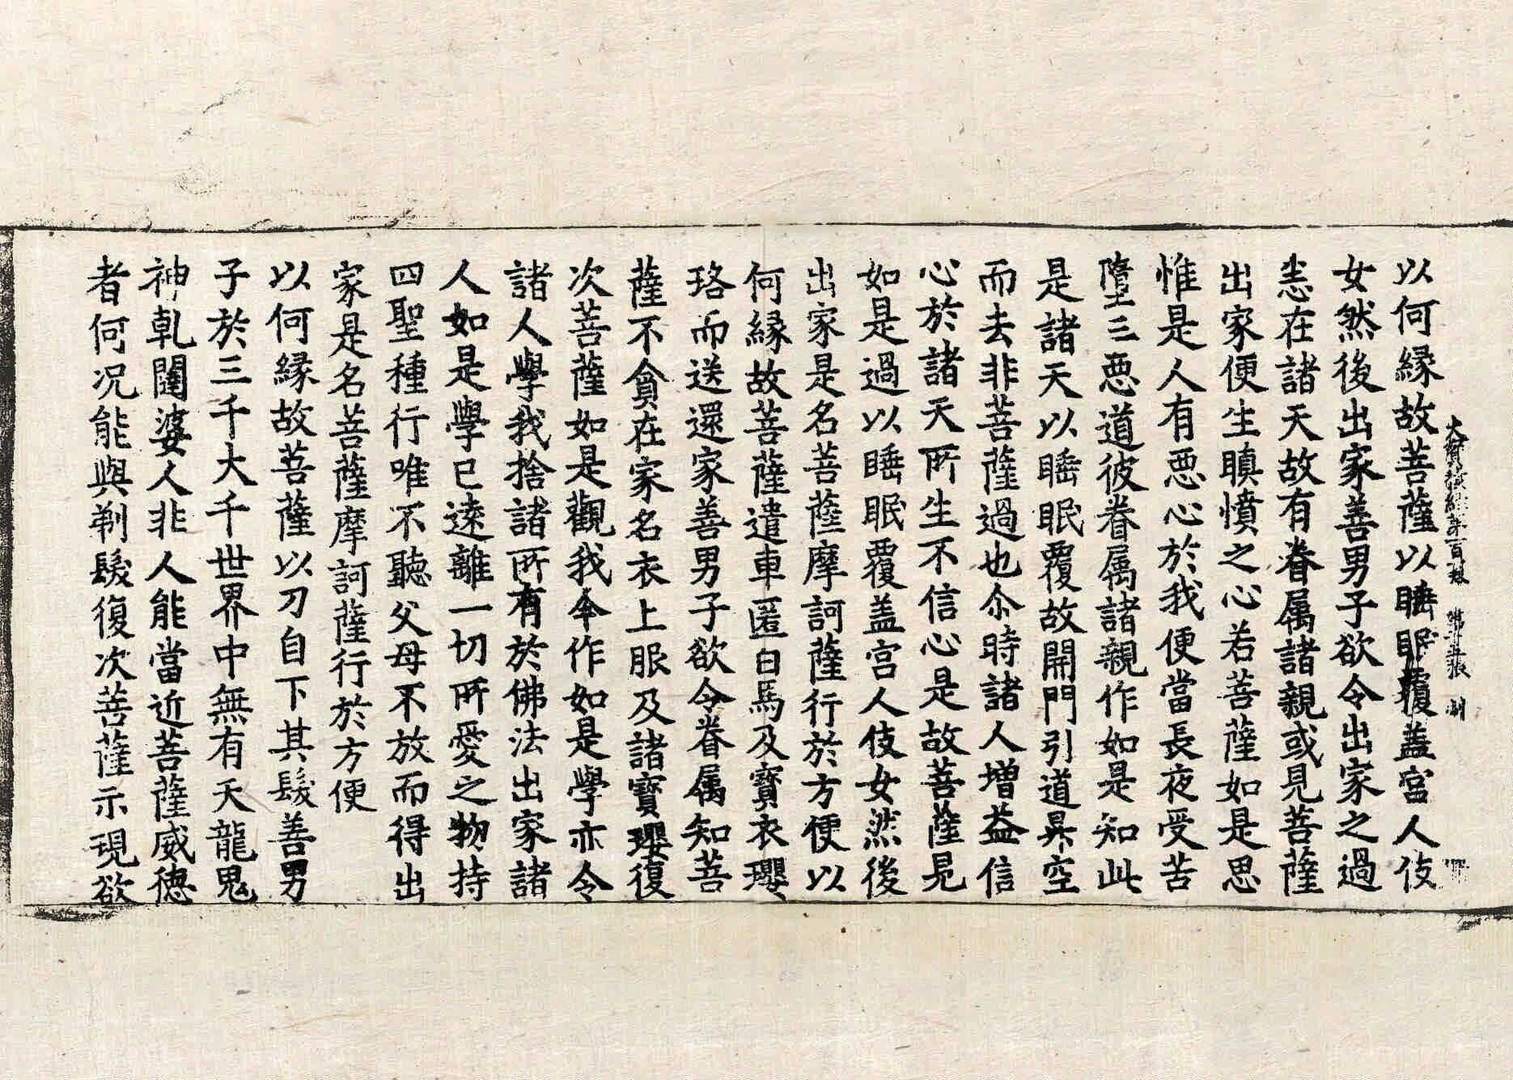 以何緣故菩薩以睡眠覆盖宮人伎
女然後出家善男子欲令出家之過
恚在諸天故有眷属諸親或見菩薩
出家便生瞋憤之心若菩薩如是思
惟是人有惡心於我便當長夜受苦
墮三惡道彼眷属諸親作如是知此
是諸天以睡眠覆故開門引道昇空
而去非菩薩過也尒時諸人增益信
心於諸天所生不信心是故菩薩見
如是過以睡眠覆盖宮人伎女然後
出家是名菩薩摩訶薩行於方便以
何緣故菩薩遣車匿白馬及寶衣瓔
珞而送還家善男子欲令眷属知菩
薩不貪在家名衣上服及諸寶瓔復
次菩薩如是觀我今作如是學亦令
諸人學我捨諸所有於佛法出家諸
人如是學已遠離一切所愛之物持
四聖種行唯不聽父母不放而得出
家是名菩薩摩訶薩行於方便
以何緣故菩薩以刀自下其髮善男
子於三千大千世界中無有天龍鬼
神乹闥婆人非人能當近菩薩威德
者何况能與剃髮復次菩薩示現欲